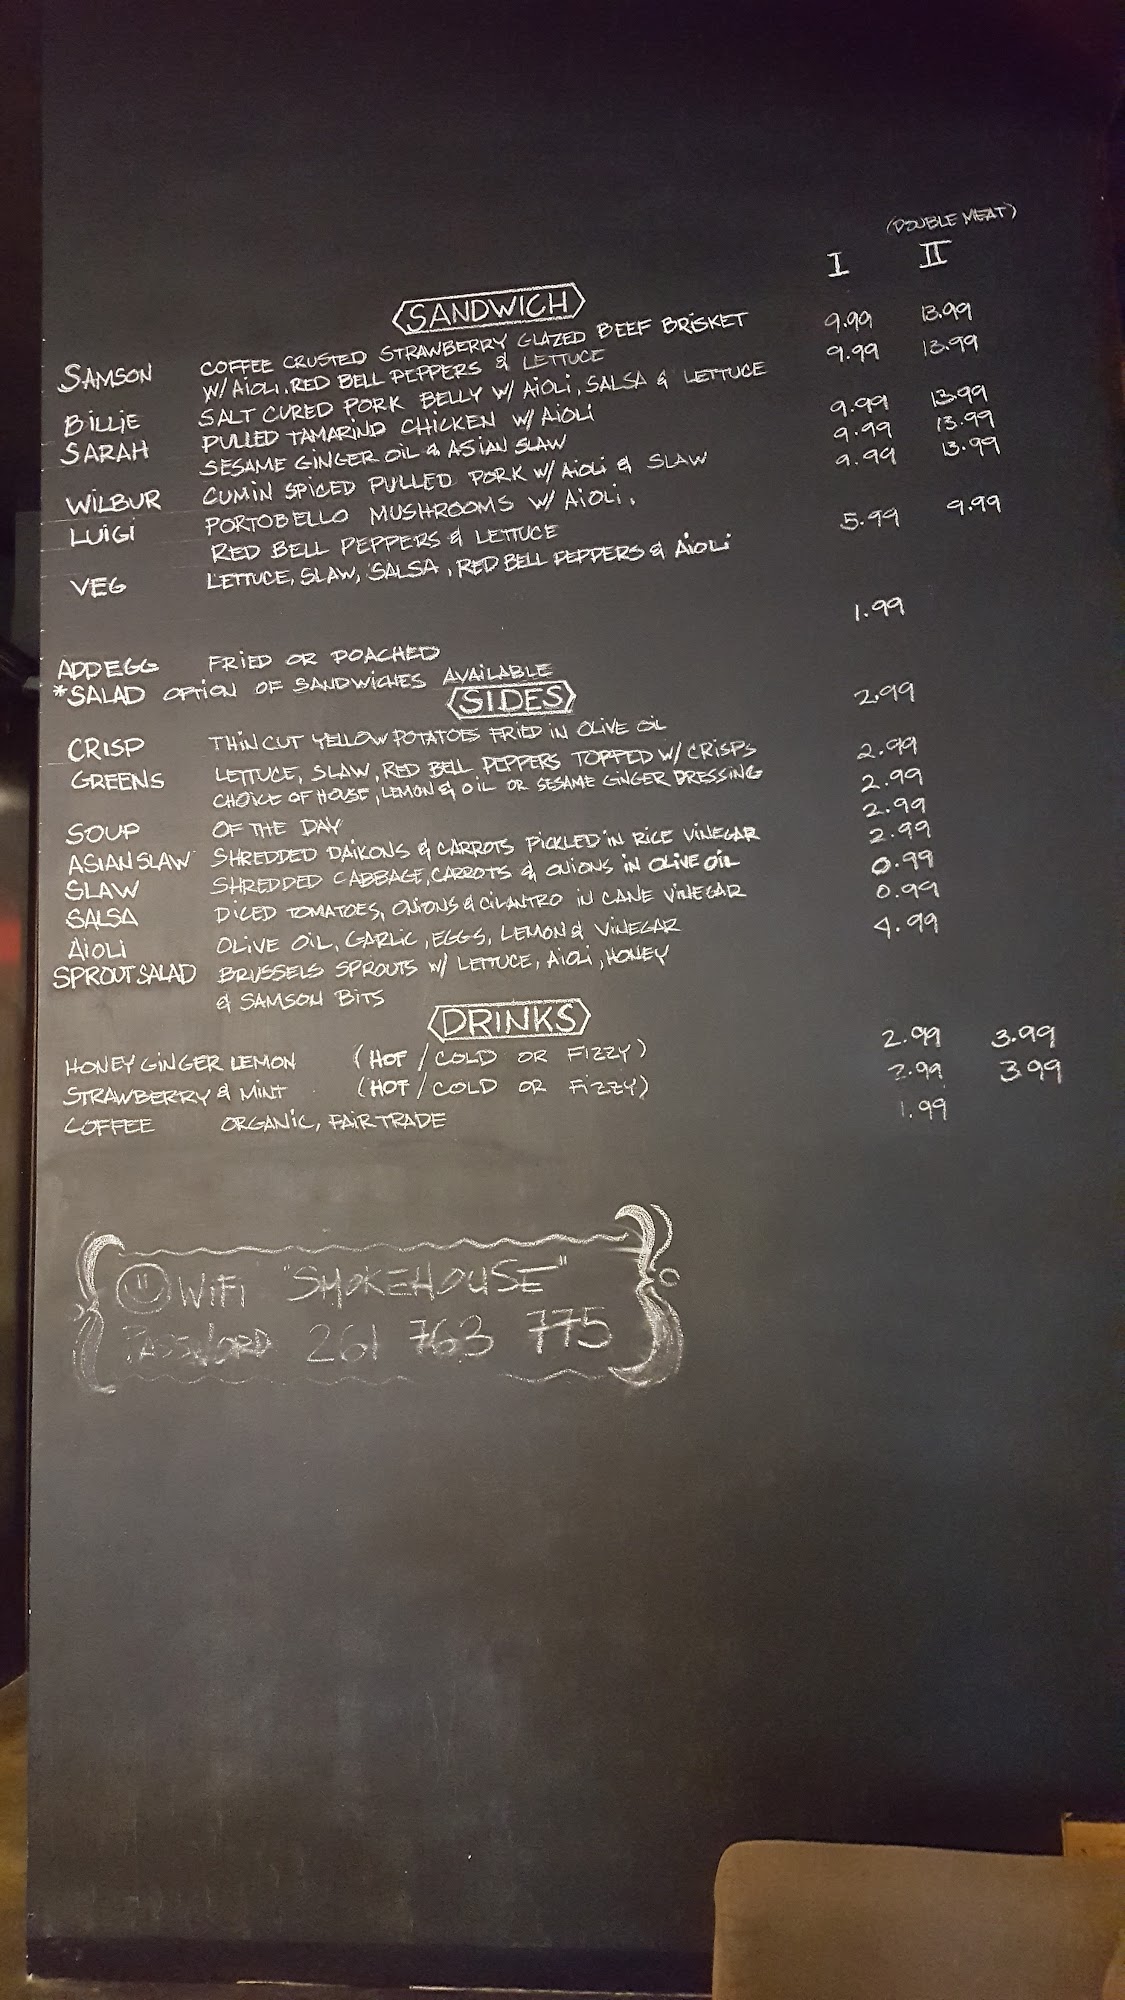 (DOUBLE MEAT)
I II
SANDWICH
SAMSON COFFEE CRUSTED STRAWBERRY GLAZED BEEF BRISKET 9.99 13.99
W/ AIOLI, RED BELL PEPPERS & LETTUCE
BILLIE SALT CURED PORK BELLY W/ AIOLI, SALSA & LETTUCE 9.99 13.99
SARAH PULLED TAMARIND CHICKEN W/ AIOLI 9.99 13.99
SESAME GINGER OIL & ASIAN SLAW
WILBUR CUMIN SPICED PULLED PORK W/ AIOLI & SLAW 9.99 13.99
LUIGI PORTOBELLO MUSHROOMS W/ AIOLI, 9.99 13.99
RED BELL PEPPERS & LETTUCE
VEG LETTUCE, SLAW, SALSA, RED BELL PEPPERS & AIOLI 5.99 9.99
ADD EGG FRIED OR POACHED 1.99
*SALAD OPTION OF SANDWICHES AVAILABLE
SIDES
CRISP THIN CUT YELLOW POTATOES FRIED IN OLIVE OIL 2.99
GREENS LETTUCE, SLAW, RED BELL PEPPERS TOPPED W/ CRISPS 2.99
CHOICE OF HOUSE, LEMON & OIL OR SESAME GINGER DRESSING
SOUP OF THE DAY 2.99
ASIAN SLAW SHREDDED DAIKONS & CARROTS PICKLED IN RICE VINEGAR 2.99
SLAW SHREDDED CABBAGE, CARROTS & ONIONS IN OLIVE OIL 2.99
SALSA DICED TOMATOES, ONIONS & CILANTRO IN CANE VINEGAR 0.99
AIOLI OLIVE OIL, GARLIC, EGGS, LEMON & VINEGAR 0.99
SPROUT SALAD BRUSSELS SPROUTS W/ LETTUCE, AIOLI, HONEY 4.99
& SAMSON BITS
DRINKS
HONEY GINGER LEMON (HOT / COLD OR FIZZY) 2.99 3.99
STRAWBERRY & MINT (HOT / COLD OR FIZZY) 2.99 3.99
COFFEE ORGANIC, FAIR TRADE 1.99
WIFI "SMOKEHOUSE"
PASSWORD 261 763 775